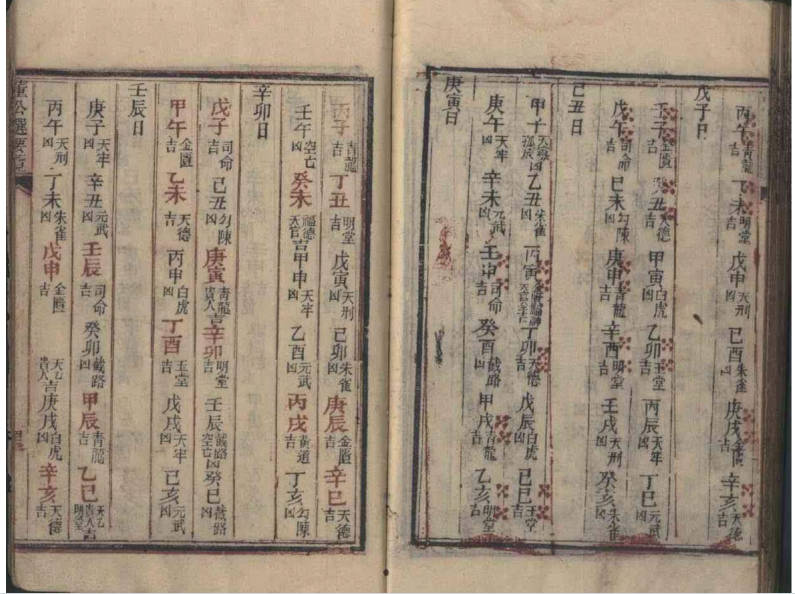 丙午青龍吉丁未明堂吉戊申天刑凶己酉朱雀凶庚戌金匱吉辛亥天德吉
戊子日
壬子金匱吉癸丑天德吉甲寅白虎凶乙卯玉堂吉丙辰天牢凶丁巳元武凶
戊午司命吉己未勾陳凶庚申青龍吉辛酉明堂吉壬戌天刑凶癸亥朱雀凶
己丑日
甲子孤辰凶乙丑朱雀凶丙寅丁卯天德吉戊辰白虎凶己巳玉堂吉
庚午天牢凶辛未元武凶壬申司命吉癸酉截路凶甲戌青龍吉乙亥明堂吉
庚寅日
丙子青龍吉丁丑明堂吉戊寅天刑凶己卯朱雀凶庚辰金匱吉辛巳天德吉
壬午空亡凶癸未福德天官吉甲申天牢凶乙酉元武凶丙戌黃道吉丁亥勾陳凶
辛卯日
戊子司命吉己丑勾陳凶庚寅青龍貴人吉辛卯明堂吉壬辰截路空亡凶癸巳截路凶
甲午金匱吉乙未天德吉丙申白虎凶丁酉玉堂吉戊戌天牢凶己亥元武凶
壬辰日
庚子天牢凶辛丑元武凶壬辰司命吉癸卯截路凶甲辰青龍吉乙巳天乙貴人吉明堂
丙午天刑凶丁未朱雀凶戊申金匱吉天乙貴人吉庚戌白虎凶辛亥天德吉
董公選要覽